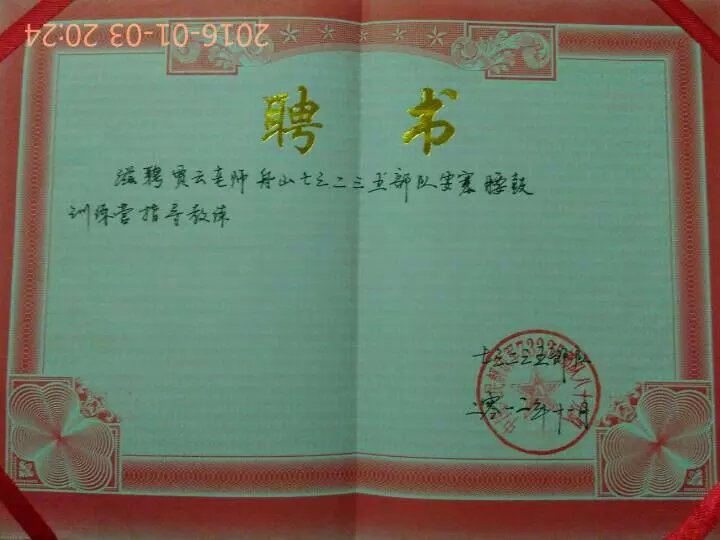 2016-01-03 20:24
聘 书
滋聘贾云老师舟山七三二三五部队安塞腰鼓
训练营指导教练
七三二三五部队
二零一二年十一月